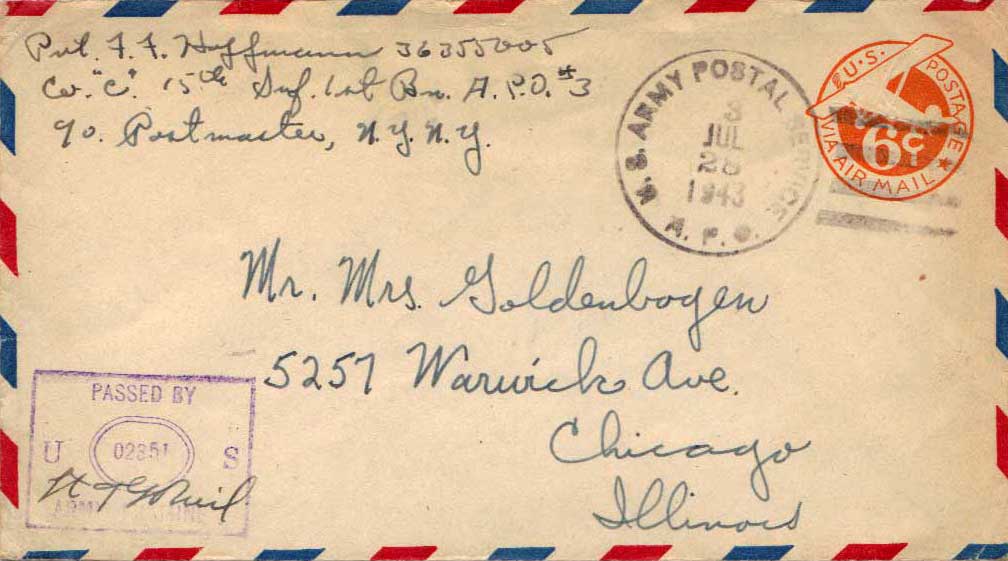 Pvt. F. F. Hoffmann 36355005
Co. "C". 15th Inf. 1st Bn. A.P.O. #3
℅. Postmaster, N.Y. N.Y.
U.S. ARMY POSTAL SERVICE
3
JUL
28
1943
A. P. O.
U.S. POSTAGE
6¢
VIA AIR MAIL
Mr. Mrs. Goldenbogen
5257 Warwick Ave.
Chicago
Illinois
PASSED BY
U 02351 S
ARMY